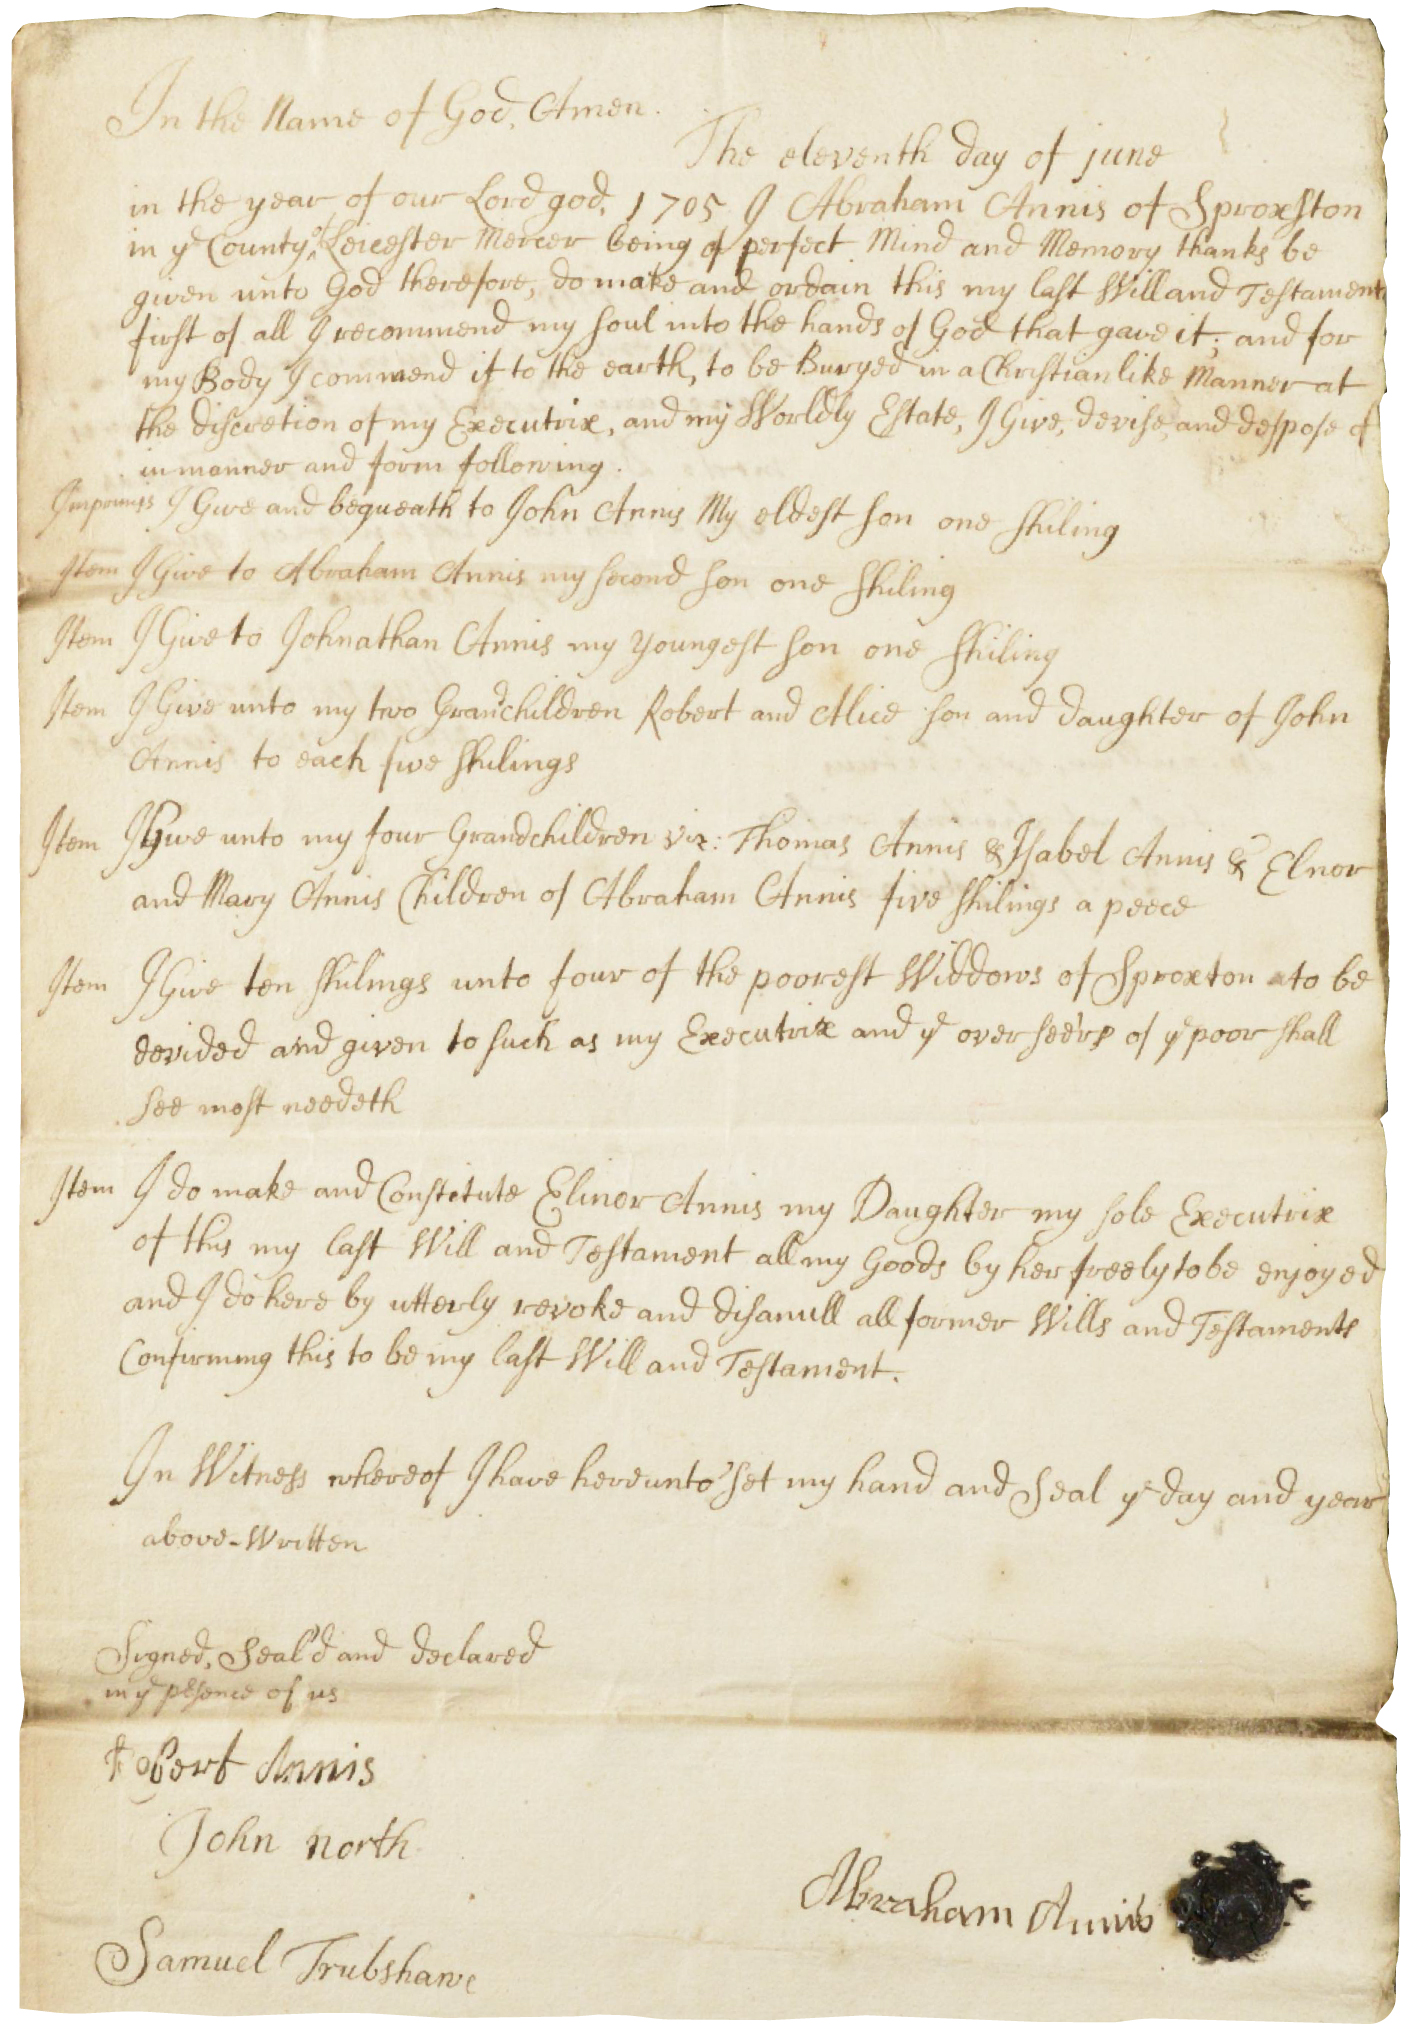 In the Name of God, Amen.
The eleventh day of june
in the year of our Lord god, 1705 I Abraham Annis of Sproxston
in ye County of Leicester Mercer being of perfect Mind and Memory thanks be
given unto God therefore, do make and ordain this my last Will and Testament
first of all I recommend my soul into the hands of God that gave it; and for
my Body I commend it to the earth, to be Buryed in a Christian like Manner at
the discretion of my Executrix, and my Worldly Estate, I Give, devise, and despose of
in manner and form following.
I Give and bequeath to John Annis My eldest son one shiling
Item I Give to Abraham Annis my second son one shiling
Item I Give to Johnathan Annis my youngest son one shiling
Item I Give unto my two Grandchildren Robert and Alice son and daughter of John
Annis to each five shilings
Item I Give unto my four Grandchildren viz: Thomas Annis & Isabel Annis & Elnor
and Mary Annis Children of Abraham Annis five shilings a peece
Item I Give ten shilings unto four of the poorest Widdows of Sproxton to be
devided and given to such as my Executrix and ye overseers of ye poor shall
see most needeth
Item I do make and Constitute Elinor Annis my Daughter my sole Executrix
of this my last Will and Testament all my Goods by her freely to be enjoyed
and I do here by utterly revoke and disanull all former Wills and Testaments
Confirming this to be my last Will and Testament.
In Witness whereof I have hereunto set my hand and Seal ye day and year
above-Written
Signed, Seal'd and declared
in ye psence of us
Robert Annis
John North
Abraham Annis
Samuel Trubshawe